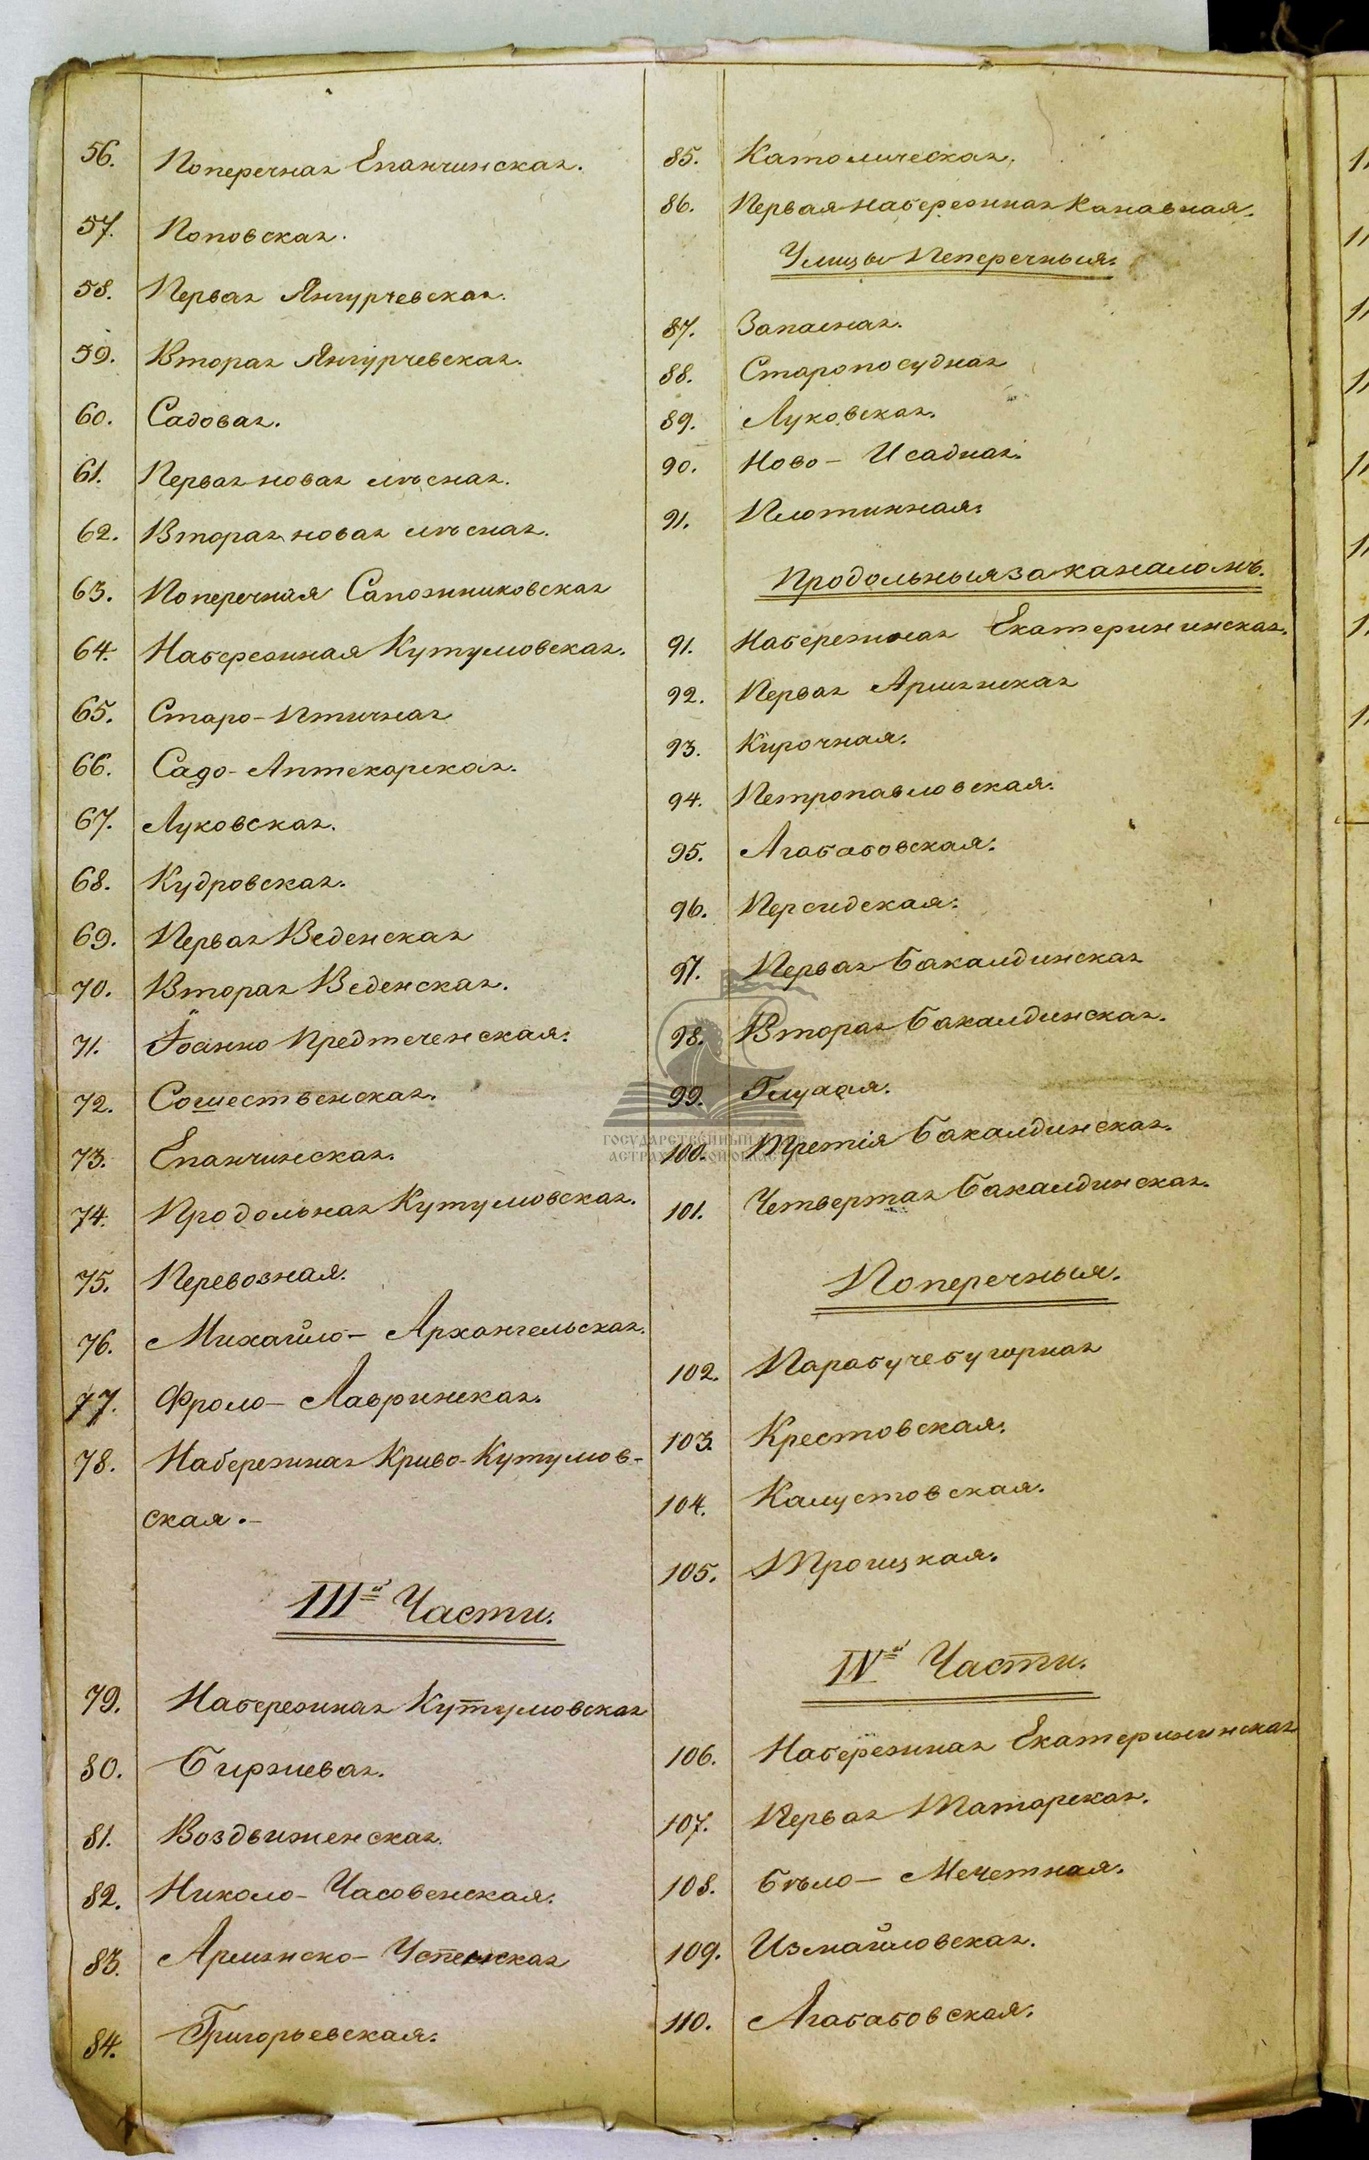 56. Поперечная Епанчинская.
57. Поповская.
58. Первая Янгурчевская.
59. Вторая Янгурчевская.
60. Садовая.
61. Первая новая лѣсная.
62. Вторая новая лѣсная.
63. Поперечная Сапожниковская
64. Набережная Кутумовская.
65. Старо-Птичная
66. Садо-Аптекарская.
67. Луковская.
68. Кудровская.
69. Первая Веденская
70. Вторая Веденская.
71. Іоанно Предтеченская.
72. Сошественская.
73. Епанчинская.
74. Продольная Кутумовская.
75. Перевозная.
76. Михайло-Архангельская.
77. Фроло-Лавринская.
78. Набережная Криво-Кутумов-
ская.-
IIIй Части.
79. Набережная Кутумовская
80. Биржевая.
81. Воздвиженская.
82. Николо-Часовенская.
83. Армянско-Успенская
84. Григорьевская.
85. Католическая.
86. Первая Набережная Канавная.
Улицы Поперечныя.
87. Запасная.
88. Старопосудная
89. Луковская.
90. Ново-Исадная.
91. Плотинная.
Продольныя за каналомъ.
91. Набережная Екатерининская.
92. Первая Армянская
93. Кирочная.
94. Петропавловская.
95. Агабабовская.
96. Персидская.
97. Первая Бакалдинская
98. Вторая Бакалдинская.
99. Глухая.
100. Третія Бакалдинская.
101. Четвертая Бакалдинская.
Поперечныя.
102. Парабучебугорная
103. Крестовская.
104. Калустовская.
105. Троицкая.
IVй Части.
106. Набережная Екатерининская
107. Первая Татарская.
108. Бѣло-Мечетная.
109. Измайловская.
110. Агабабовская.
ГОСУДАРСТВЕННЫЙ АРХИВ
АСТРАХАНСКОЙ ОБЛАСТИ